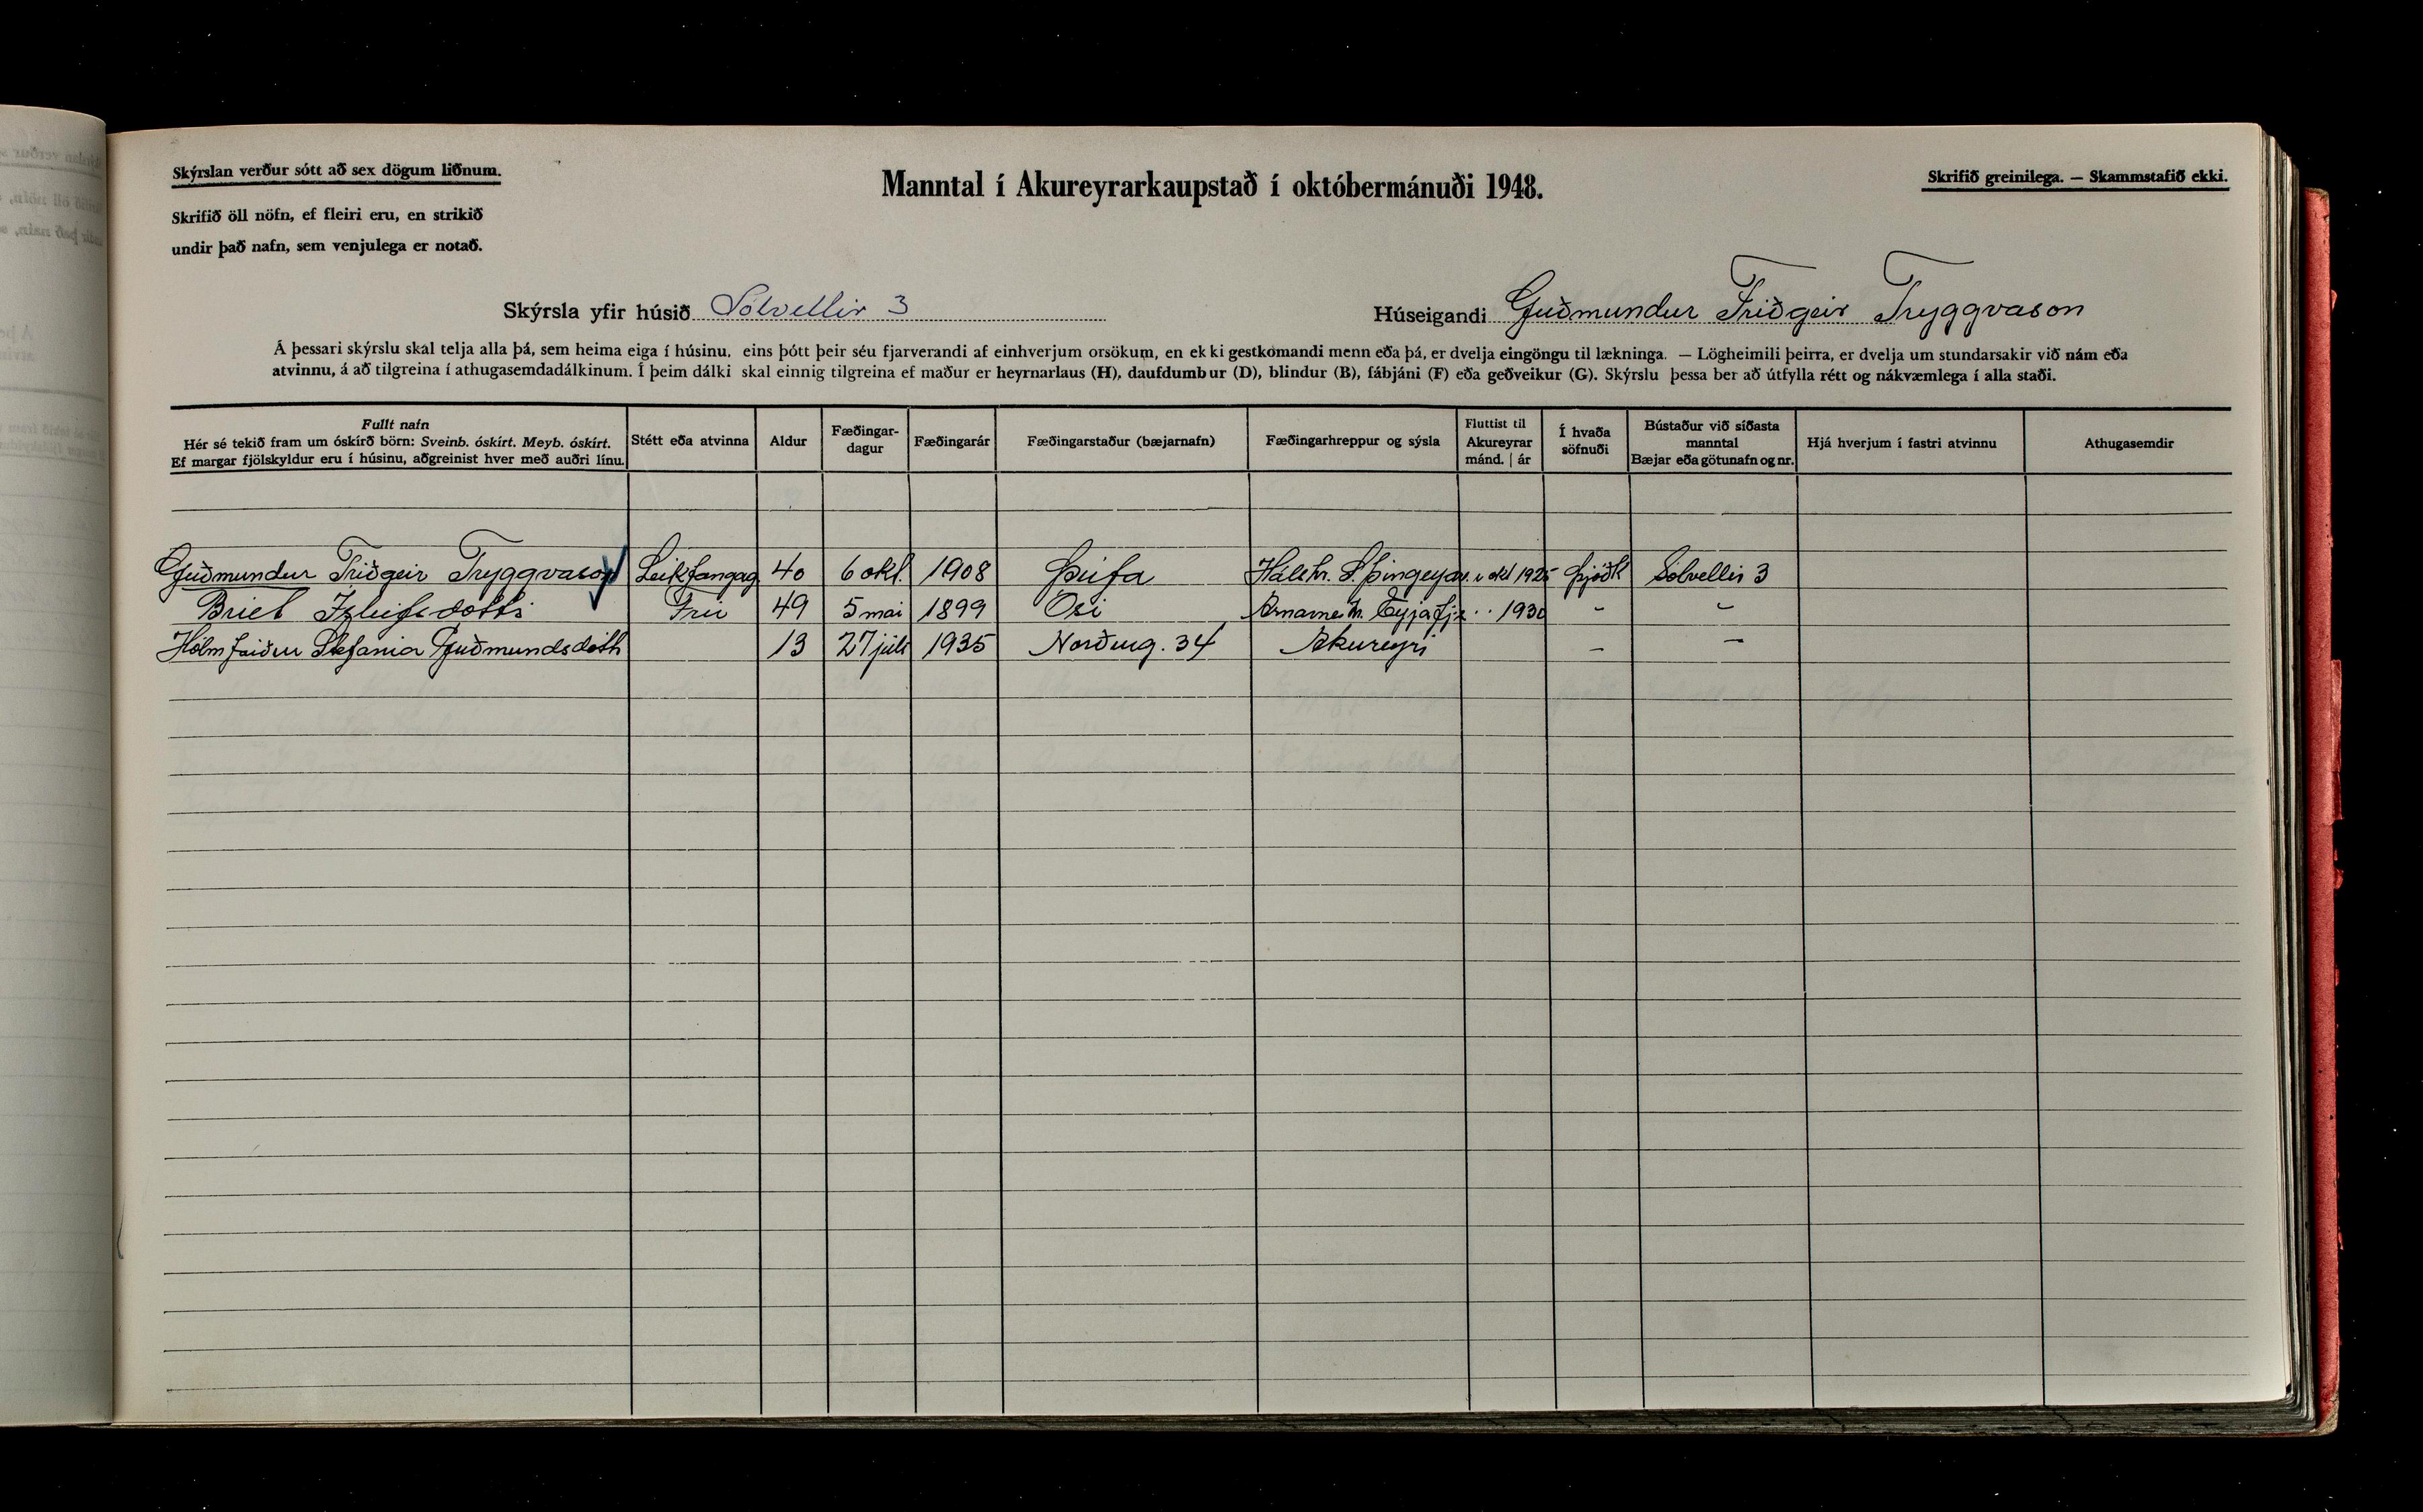 Skýrslan verður sótt að sex dögum liðnum.
Skrifið öll nöfn, ef fleiri eru, en strikið
undir það nafn, sem venjulega er notað.
Manntal í Akureyrarkaupstað í októbermánuði 1948.
Skrifið greinilega. — Skammstafið ekki.
Skýrsla yfir húsið Sólvellir 3
Húseigandi Guðmundur Friðgeir Tryggvason
Á þessari skýrslu skal telja alla þá, sem heima eiga í húsinu, eins þótt þeir séu fjarverandi af einhverjum orsökum, en ekki gestkomandi menn eða þá, er dvelja eingöngu til lækninga. — Lögheimili þeirra, er dvelja um stundarsakir við nám eða
atvinnu, á að tilgreina í athugasemdadálkinum. Í þeim dálki skal einnig tilgreina ef maður er heyrnarlaus (H), daufdumbur (D), blindur (B), fábjáni (F) eða geðveikur (G). Skýrslu þessa ber að útfylla rétt og nákvæmlega í alla staði.
Fullt nafn
Hér sé tekið fram um óskírð börn: Sveinb. óskírt. Meyb. óskírt.
Ef margar fjölskyldur eru í húsinu, aðgreinist hver með auðri línu.
Stétt eða atvinna
Aldur
Fæðingar-
dagur
Fæðingarár
Fæðingarstaður (bæjarnafn)
Fæðingarhreppur og sýsla
Fluttist til
Akureyrar
mánd. | ár
Í hvaða
söfnuði
Bústaður við síðasta
manntal
Bæjar eða götunafn og nr.
Hjá hverjum í fastri atvinnu
Athugasemdir
Guðmundur Friðgeir Tryggvason Leikfangag. 40 6 okt. 1908 Þúfa Hálshr. S. Þingeyar. í okt 1925 Þjóðk Sólvellir 3
Briet Isleifsdottir Frú 49 5 mai 1899 Ósi Arnarneshr. Eyjafj. 〃 1930 - -
Hólmfriður Stefania Guðmundsdóttir 13 27 júli 1935 Norðurg. 34 Akureyri - -